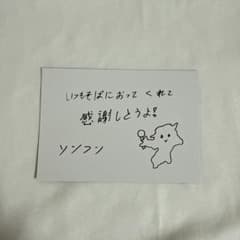 いつもそばにおって くれて
感謝しとうよ!
ソンフン